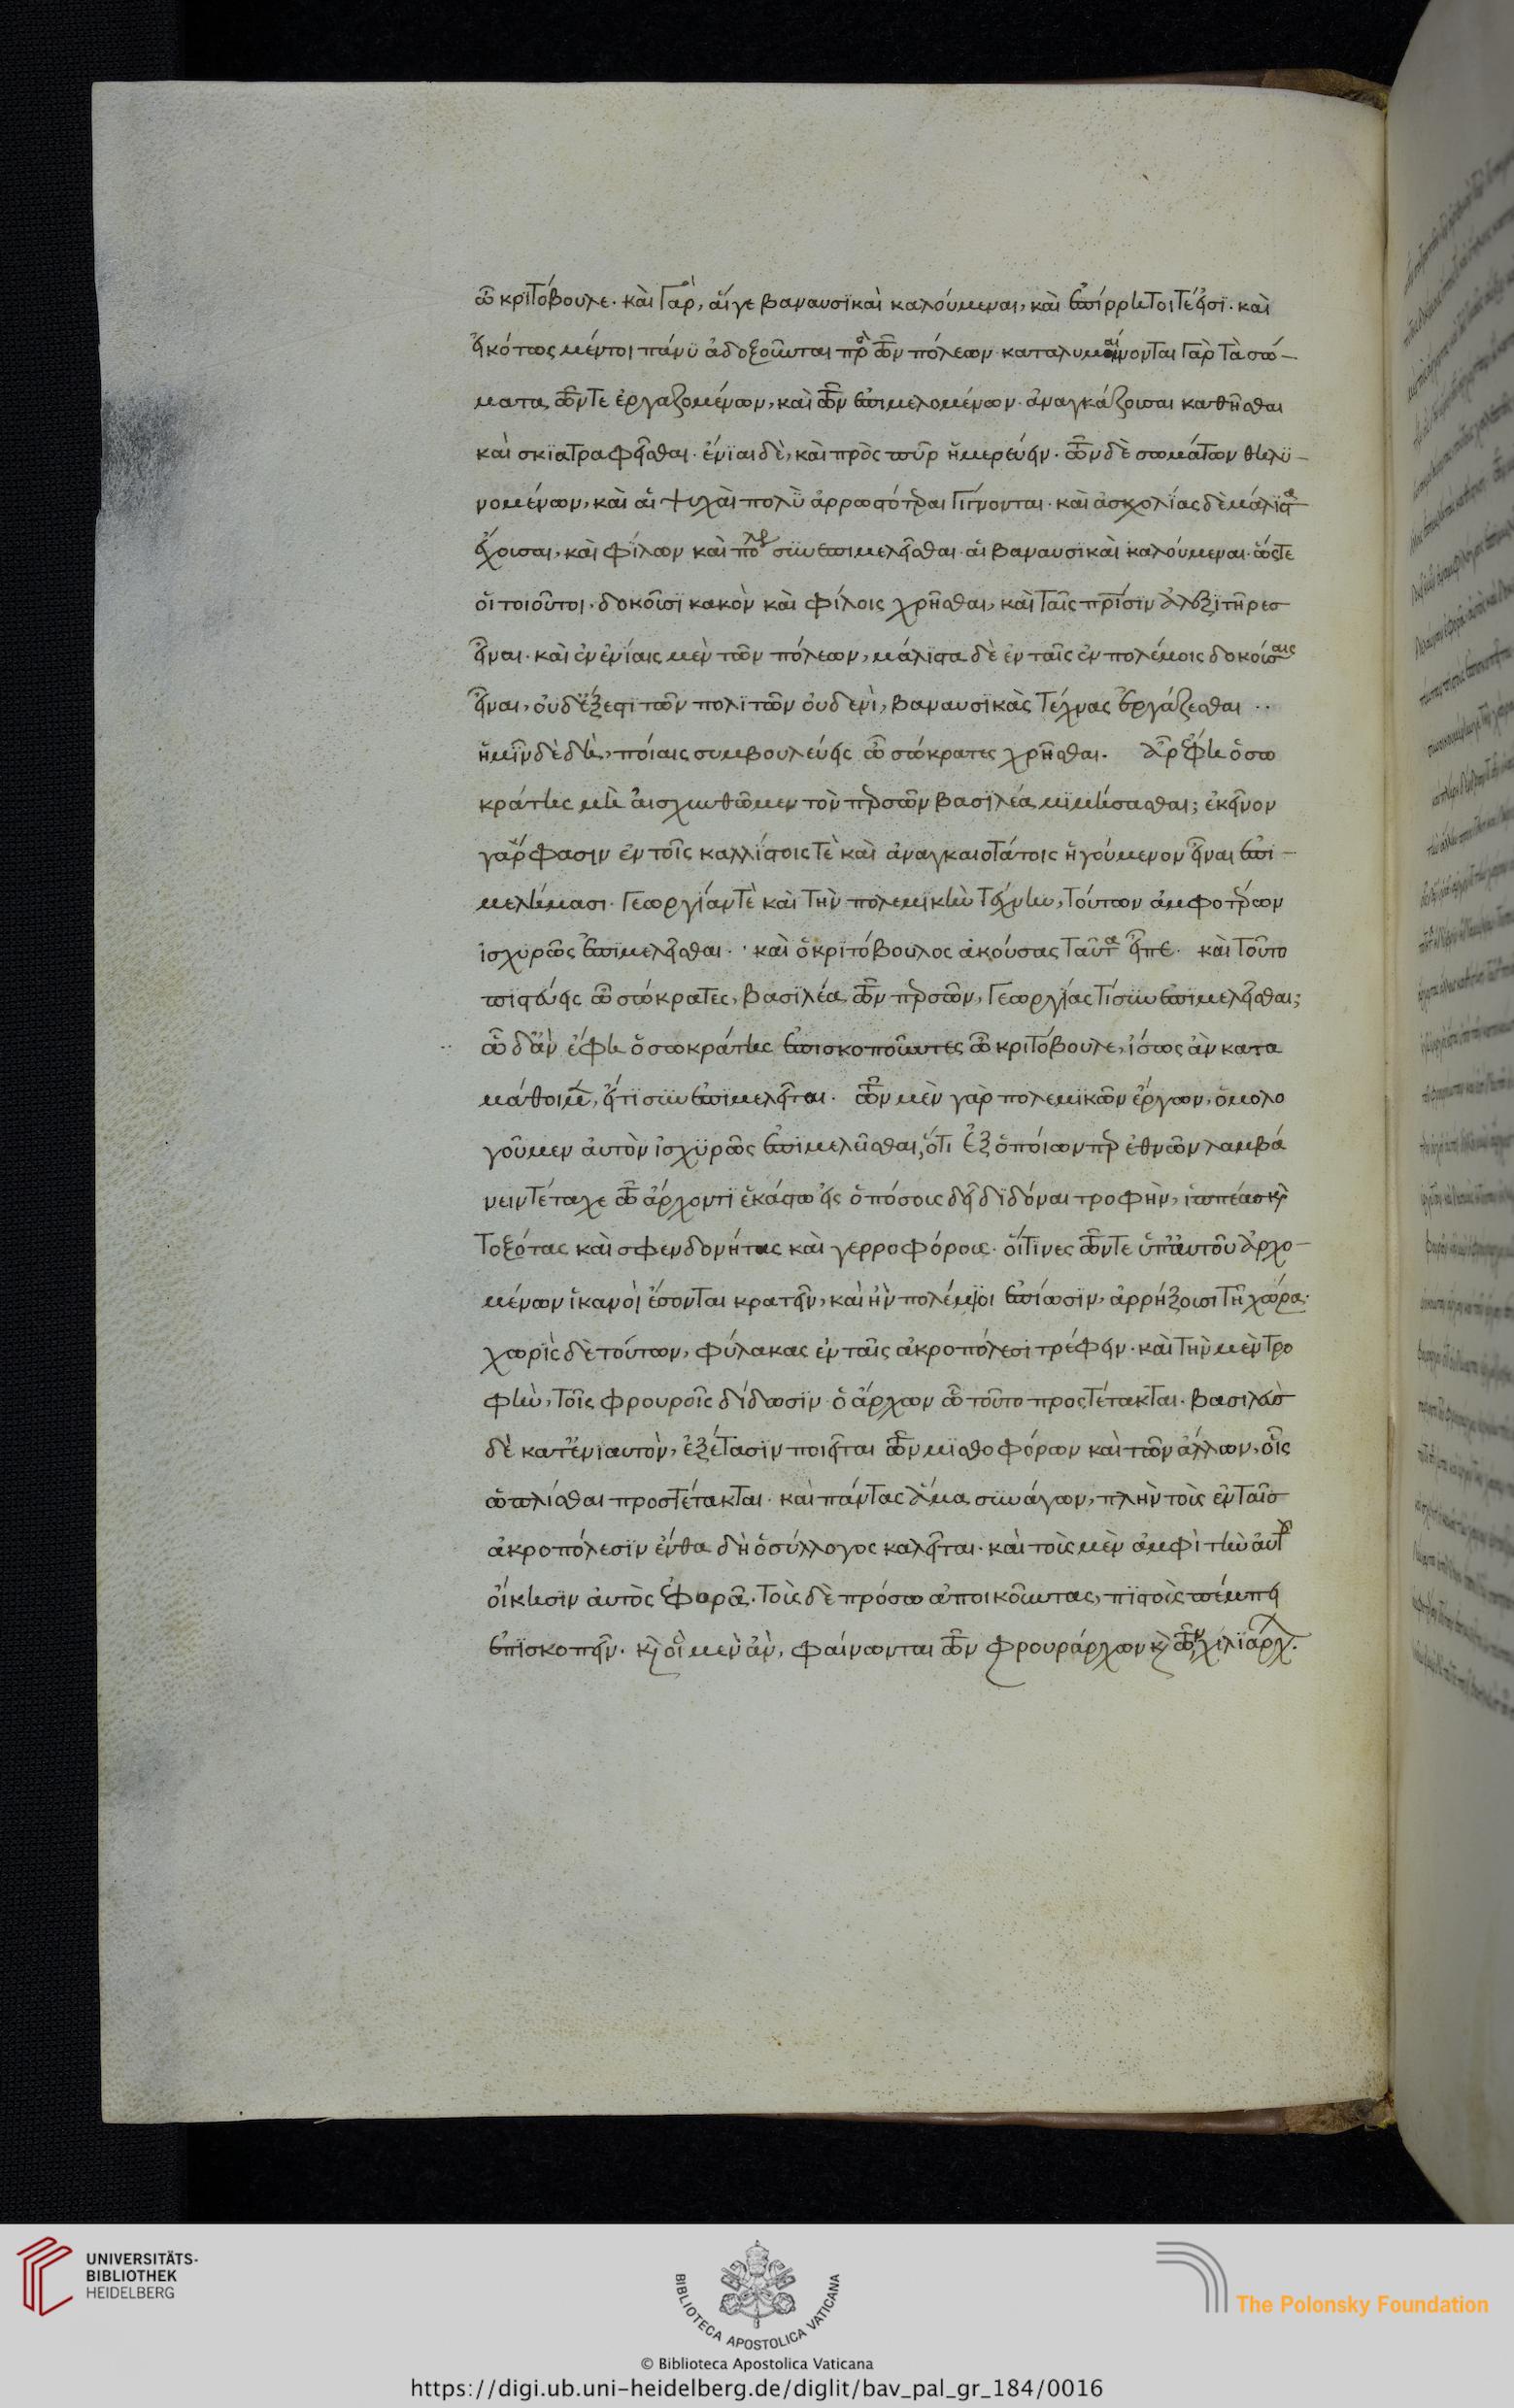 ὦ κριτόβουλε. καὶ γὰρ, αἵ γε βαναυσϊκαὶ καλούμεναι, καὶ ἐπίρρητοι τέ εἰσϊ. καὶ
εἰκότως μέντοι πάνϋ ἀδοξοῦνται πρὸ τῶν πόλεων. καταλυμαίνονται γὰρ τὰ σώ-
ματα τῶν τε ἐργαζομένων, καὶ τῶν ἐπιμελομένων. ἀναγκάζουσαι καθῆσθαι
καὶ σκϊατραφεῖσθαι. ἔνϊαι δὲ, καὶ πρὸς πῦρ ἡμερεύειν. τῶν δὲ σωμάτων θηλϋ-
νομένων, καὶ αἱ ψυχαὶ πολὺ ἀρρωστότεραι γίγνονται. καὶ ἀσχολίας δὲ μάλιστα
ἔχουσαι, καὶ φίλων καὶ πόλεως συνεπιμελεῖσθαι αἱ βαναυσϊκαὶ καλούμεναι. ὥστε
οἱ τοιοῦτοι, δοκοῦσϊ κακὸν καὶ φίλοις χρῆσθαι, καὶ ταῖς πατρίσϊν ἀλεξϊτῆρεσ
εἶναι. καὶ ἐν ἐνίαις μὲν τῶν πόλεων, μάλιστα δὲ ἐν ταῖς ἐν πολέμοις δοκούσαις
εἶναι, οὐδ' ἔξεστι τῶν πολιτῶν οὐδενὶ, βαναυσϊκὰς τέχνας ἐργάζεσθαι ..
ἡμῖν δὲ δὴ, ποίαις συμβουλεύεις ὦ σώκρατες χρῆσθαι. ἆρ' ἔφη ὁ σω
κράτης μὴ αἰσχυνθῶμεν τὸν περσῶν βασϊλέα μϊμήσασθαι; ἐκεῖνον
γάρ φασιν ἐν τοῖς καλλίστοις τὲ καὶ ἀναγκαιοτάτοις ἡγούμενον εἶναι ἐπι-
μελήμασι. γεωργίαν τὲ καὶ τὴν πολεμϊκὴν τέχνην, τούτων ἀμφοτέρων
ἰσχϋρῶς ἐπϊμελεῖσθαι. . καὶ ὁ κριτόβουλος ἀκούσας ταῦτα εἶπε. καὶ τοῦτο
πιστεύεις ὦ σώκρατες, βασϊλέα τῶν περσῶν, γεωργίας τί συνεπϊμελεῖσθαι;
ὧδ' ἂν ἔφη ὁ σωκράτης ἐπισκοποῦντες ὦ κριτόβουλε, ἴσως ἂν κατα
μάθοιμεν, εἴ τϊ συνεπϊμελεῖται. τῶν μὲν γὰρ πολεμϊκῶν ἔργων, ὁμολο
γοῦμεν αὐτὸν ἰσχϋρῶς ἐπϊμελεῖσθαι, ὅτι ἐξ ὁπόϊων περ ἐθνῶν λαμβά
νειν τέταχε τῷ ἄρχοντϊ ἑκάστω εἰς ὁπόσους δεῖ δϊδόναι τροφὴν, ἱππέας καὶ
τοξότας καὶ σφενδονήτας καὶ γερροφόρους. οἵτϊνες τῶν τε ὑπ' αὐτοῦ ἀρχο-
μένων ἱκανοὶ ἔσονται κρατεῖν, καὶ ἢν πολέμϊοι ἐπίωσϊν, ἀρρήξουσι τῆ χώρα.
χωρὶς δὲ τούτων, φύλακας ἐν ταῖς ἀκροπόλεσι τρέφειν. καὶ τὴν μὲν τρο
φὴν, τοῖς φρουροῖς δίδωσϊν ὁ ἄρχων ᾧ τοῦτο προςτέτακται. βασιλεὺσ
δὲ κατ' ἐνϊαυτὸν, ἐξέτασϊν ποιεῖται τῶν μϊσθοφόρων καὶ τῶν ἄλλων, οἷς
ὡπλίσθαι προστέτακται. καὶ πάντας ἅμα συνάγων, πλὴν τοὺς ἐν ταῖσ
ἀκροπόλεσϊν ἔνθα δὴ ὁ σύλλογος καλεῖται. καὶ τοὺς μὲν ἀμφὶ τὴν αὐτοῦ
οἴκησϊν αὐτὸς ἐφορᾶ. τοὺς δὲ πρόσω ἀποικοῦντας, πϊστοὺς πέμπει
ἐπϊσκοπεῖν. καὶ οἳ μὲν ἂν, φαίνωνται τῶν φρουράρχων καὶ τῶν χιλϊάρχων.
UNIVERSITÄTS-
BIBLIOTHEK
HEIDELBERG
BIBLIOTECA APOSTOLICA VATICANA
The Polonsky Foundation
© Biblioteca Apostolica Vaticana
https://digi.ub.uni-heidelberg.de/diglit/bav_pal_gr_184/0016